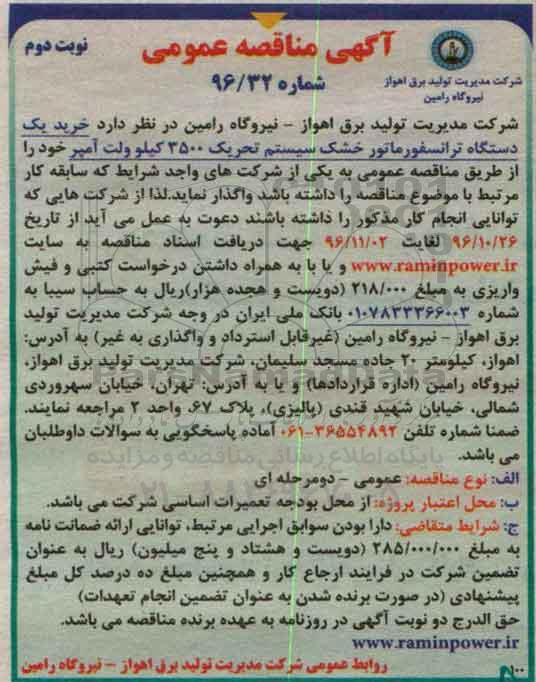 آگهی مناقصه عمومی
نوبت دوم
شماره ۹۶/۳۲
شرکت مدیریت تولید برق اهواز
نیروگاه رامین
شرکت مدیریت تولید برق اهواز – نیروگاه رامین در نظر دارد خرید یک
دستگاه ترانسفورماتور خشک سیستم تحریک ۳۵۰۰ کیلو ولت آمپر خود را
از طریق مناقصه عمومی به یکی از شرکت های واجد شرایط که سابقه کار
مرتبط با موضوع مناقصه را داشته باشد واگذار نماید.لذا از شرکت هایی که
توانایی انجام کار مذکور را داشته باشند دعوت به عمل می آید از تاریخ
۹۶/۱۰/۲۶ لغایت ۹۶/۱۱/۰۲ جهت دریافت اسناد مناقصه به سایت
www.raminpower.ir و یا با به همراه داشتن درخواست کتبی و فیش
واریزی به مبلغ ۲۱۸/۰۰۰ (دویست و هجده هزار)ریال به حساب سیبا به
شماره ۰۱۰۷۸۳۳۳۶۶۰۰۳ بانک ملی ایران در وجه شرکت مدیریت تولید
برق اهواز – نیروگاه رامین (غیرقابل استرداد و واگذاری به غیر) به آدرس:
اهواز، کیلومتر ۲۰ جاده مسجد سلیمان، شرکت مدیریت تولید برق اهواز،
نیروگاه رامین (اداره قراردادها) و یا به آدرس: تهران، خیابان سهروردی
شمالی، خیابان شهید قندی (پالیزی)، پلاک ۶۷، واحد ۲ مراجعه نمایند.
ضمنا شماره تلفن ۳۶۵۵۴۸۹۲–۰۶۱ آماده پاسخگویی به سوالات داوطلبان
می باشد.
الف: نوع مناقصه: عمومی – دومرحله ای
ب: محل اعتبار پروژه: از محل بودجه تعمیرات اساسی شرکت می باشد.
ج: شرایط متقاضی: دارا بودن سوابق اجرایی مرتبط، توانایی ارائه ضمانت نامه
به مبلغ ۲۸۵/۰۰۰/۰۰۰ (دویست و هشتاد و پنج میلیون) ریال به عنوان
تضمین شرکت در فرایند ارجاع کار و همچنین مبلغ ده درصد کل مبلغ
پیشنهادی (در صورت برنده شدن به عنوان تضمین انجام تعهدات)
حق الدرج دو نوبت آگهی در روزنامه به عهده برنده مناقصه می باشد.
www.raminpower.ir
روابط عمومی شرکت مدیریت تولید برق اهواز – نیروگاه رامین